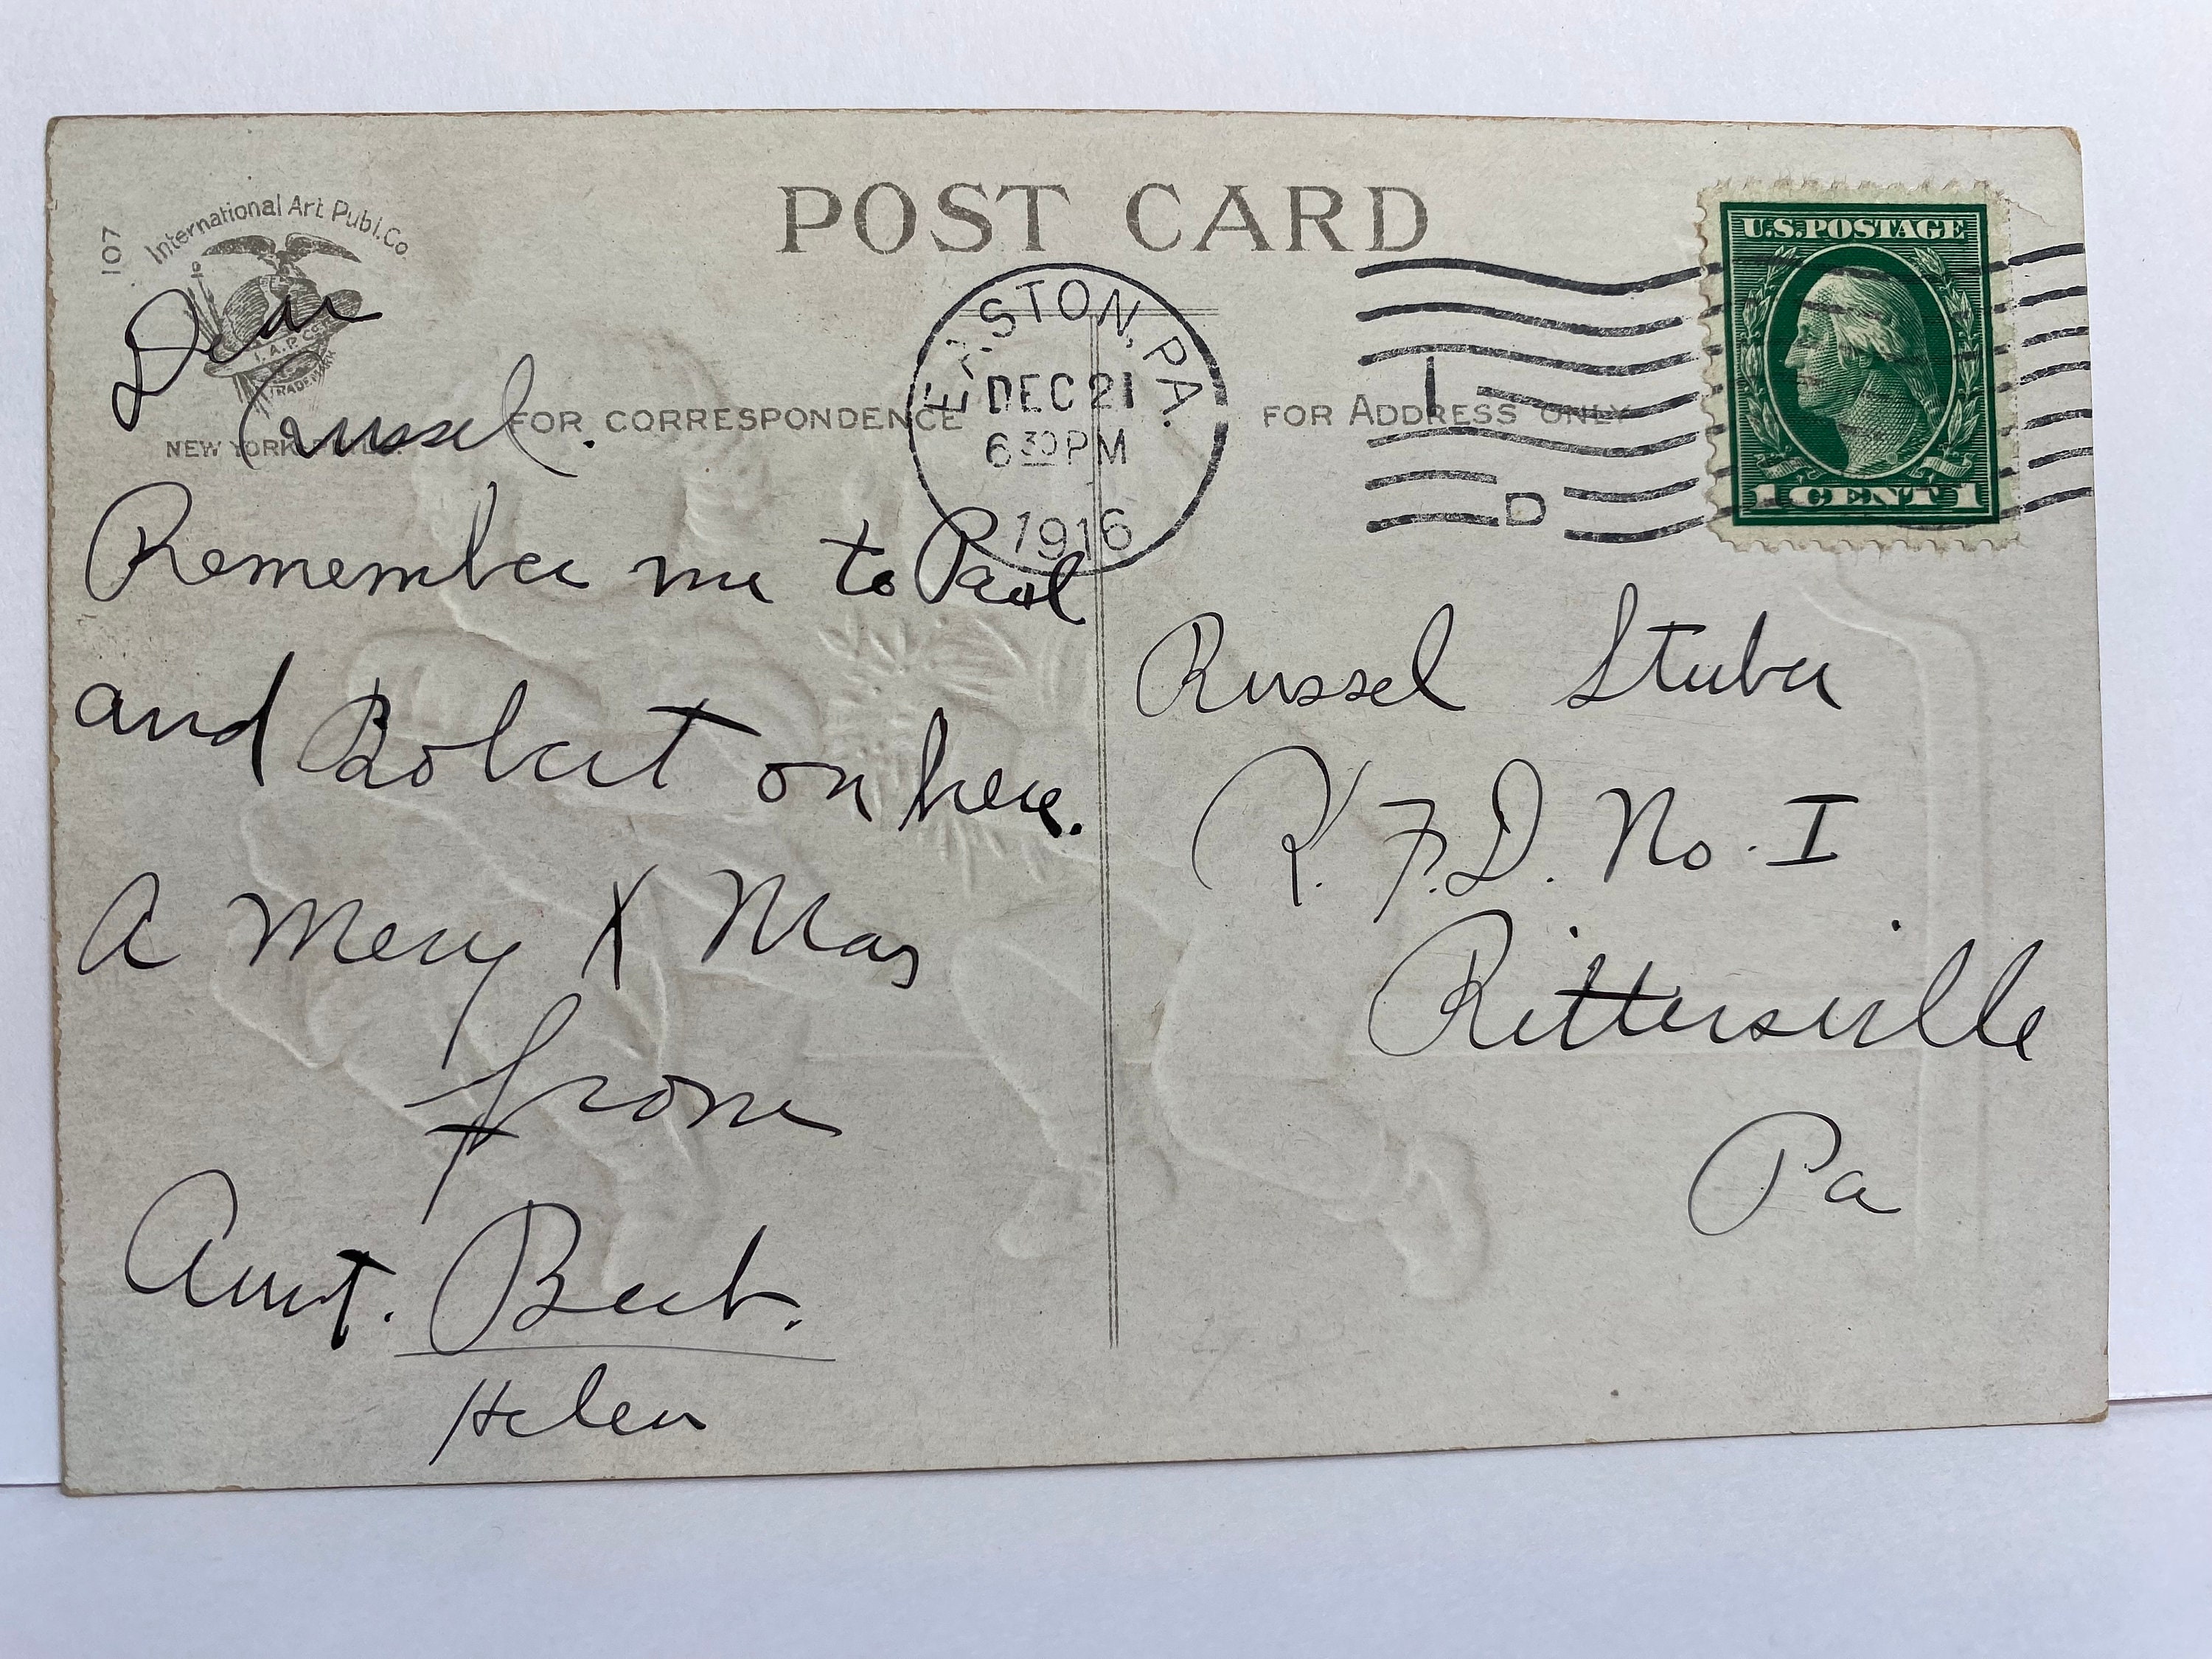 POST CARD
International Art Publ. Co
107
I. A. P. Co.
TRADE MARK
NEW YORK
FOR CORRESPONDENCE
FOR ADDRESS ONLY
EASTON, PA.
DEC 21
6 30 PM
1916
1
D
U.S. POSTAGE
1 CENT 1
Dear
Russel.
Remember me to Paul
and Robert on here.
A Merry X Mas
from
Aunt. Bert.
Helen
Russel Stuber
R. F. D. No. I
Rittersville
Pa